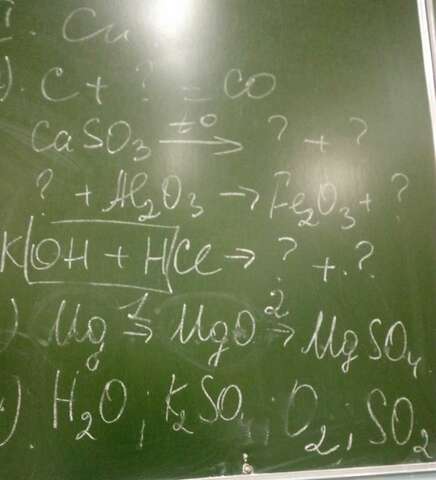 I. Cu
). C + ? = CO
CaSO₃ —t°→ ? + ?
? + Al₂O₃ → Fe₂O₃ + ?
K|OH + H|Cl → ? + ?
) Mg —1→ MgO —2→ MgSO₄
). H₂O; K₂SO₄; O₂; SO₂